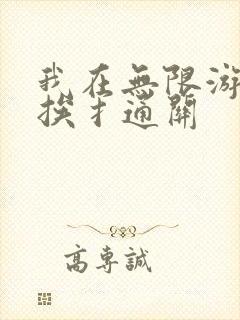 我在無限游
挨扌通關
高專誠